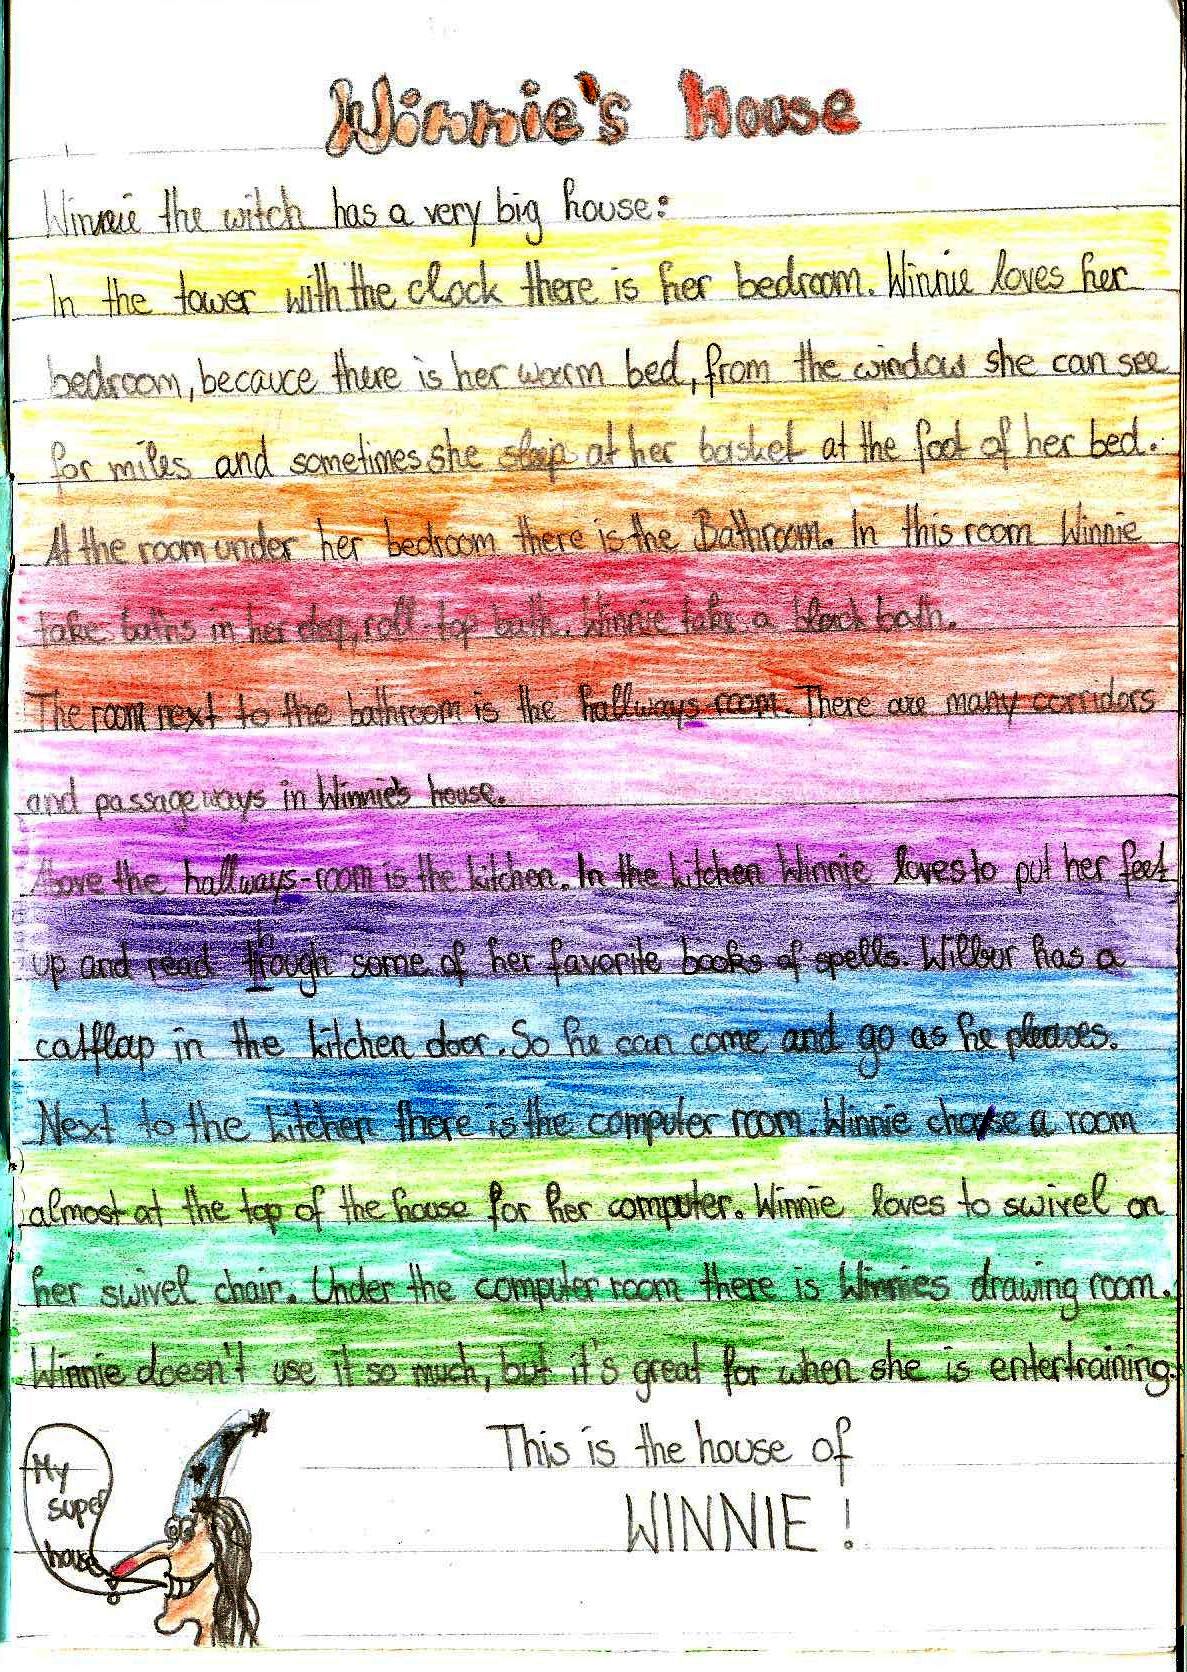 Winnie's house
Winnie the witch has a very big house:
In the tower with the clock there is her bedroom. Winnie loves her
bedroom, becauce there is her warm bed, from the window she can see
for miles and sometimes she sleep at her basket at the foot of her bed.
At the room under her bedroom there is the Bathroom. In this room Winnie
take baths in her deep, roll-top bath. Winnie take a black bath.
The room next to the bathroom is the hallways-room. There are many corridors
and passageways in Winnie's house.
Above the hallways-room is the kitchen. In the kitchen Winnie loves to put her feet
up and read through some of her favorite books of spells. Wilbur has a
catflap in the kitchen door. So he can come and go as he pleases.
Next to the kitchen there is the computer room. Winnie chose a room
almost at the top of the house for her computer. Winnie loves to swivel on
her swivel chair. Under the computer room there is Winnies drawing room.
Winnie doesn't use it so much, but it's great for when she is entertraining.
This is the house of
WINNIE!
My
super
house